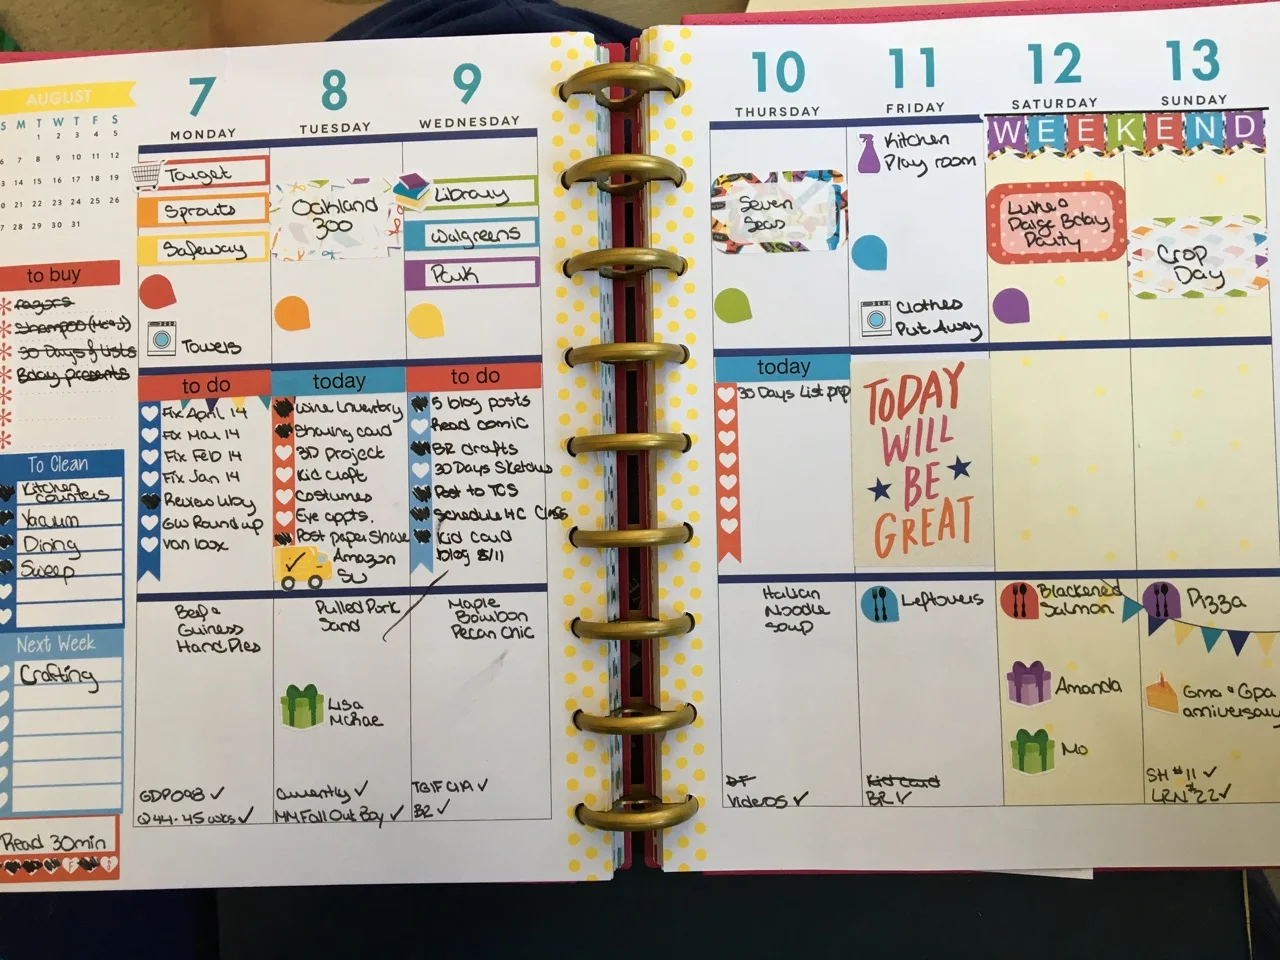 AUGUST
S M T W T F S
1 2 3 4 5
6 7 8 9 10 11 12
3 14 15 16 17 18 19
0 21 22 23 24 25 26
7 28 29 30 31
to buy
razors
Shampoo (H&S)
30 Days of Lists
Bday presents
To Clean
Kitchen
counters
Vacuum
Dining
Sweep
Next Week
Crafting
Read 30min
7
MONDAY
Target
Sprouts
Safeway
Towels
to do
Fix April 14
Fix Mar 14
Fix Feb 14
Fix Jan 14
Review Way
GW Round up
Van 100x
Beef &
Guiness
Hand Pies
GDP098 ✓
Q44-45 wks ✓
8
TUESDAY
Oakland
300
today
Wine Inventory
Sharing card
3D Project
Kid Craft
Costumes
Eye appts.
Post paper Share
Amazon
SW
Pulled Pork
Sand
Lisa
McRae
Currently ✓
MM Fall Out Boy ✓
9
WEDNESDAY
Library
Walgreens
Park
to do
5 blog posts
Read comic
BR crafts
30 Days Sketches
Post to TCS
Schedule HC Class
Kid card
blog 8/11
Maple
Bourbon
Pecan Chic
TGIF CHA ✓
BR ✓
10
THURSDAY
Seven
Seas
today
30 Days List prep
Italian
Noodle
Soup
DF
Videos ✓
11
FRIDAY
Kitchen
Play room
Clothes
Put Away
TODAY
WILL
BE
GREAT
Leftovers
Kid Card
BR ✓
12
SATURDAY
WEEKEND
Luke &
Paige Bday
Party
Blackened
Salmon
Amanda
Mo
13
SUNDAY
Crop
Day
Pizza
Gma & Gpa
anniversary
SH #11 ✓
LRN #22 ✓